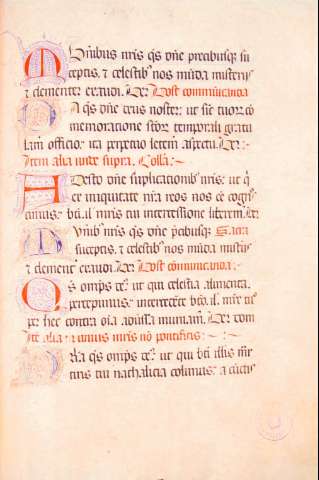 Munibus nr̄is qs dn̄e precibusqꝫ su
sceptis. ⁊ celestibꝰ nos mūda misterijs
⁊ clementer exaudi. Per. Post communicanda
Da qs dn̄e deus noster: ut sic tuorꝫ cō
memoratione sc̄oꝝ temporali gratu
lam̄ officio: ut perpetuo letem̄ aspectu. Per.
Item alia unde supra. Collā.
Adesto dn̄e suplicationibꝰ nr̄is: ut q̄
ex iniquitate nr̄a reos nos ee cognos
cimus: bt̄i .ill. mr̄is tui intercessione liberem̄. Per
Munibꝰ nr̄is qs dn̄e p̄cibusqꝫ Sacra
susceptis. ⁊ celestibꝰ nos mūda misterijs
⁊ clement̄ exaudi. Per. Post communicanda.
Qs omp̄s de'. ut qui celestia alimenta
percepimus: intercedente bt̄o .ill. mr̄e tuo
per hec contra oīa aduersa muniam̄. Per. Com̄
alia .i. unius mr̄is nō pontificis
Pr̄a qs omp̄s de'. ut qui bt̄i .illius mr̄
tiris tui nathalicia colimus: a cūctis